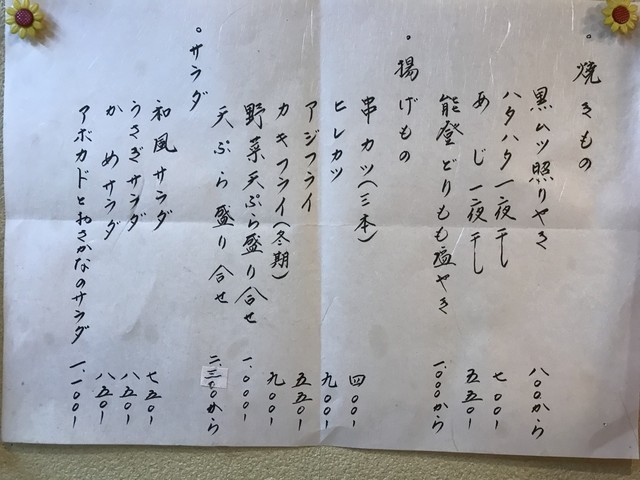 。焼きもの
黒ムツ照りやき 八〇〇から
ハタハタ一夜干し 七〇〇ー
あじ一夜干し 五五〇ー
能登どりもも塩やき 一.〇〇〇から
。揚げもの
串カツ(三本) 四〇〇ー
ヒレカツ 九〇〇ー
アジフライ 五五〇ー
カキフライ(冬期) 九〇〇ー
野菜天ぷら盛り合せ 一.〇〇〇ー
天ぷら盛り合せ 二.三〇〇から
。サラダ
和風サラダ 七五〇ー
うさぎサラダ 八五〇ー
かめサラダ 八五〇ー
アボカドとおさかなのサラダ 一.一〇〇ー